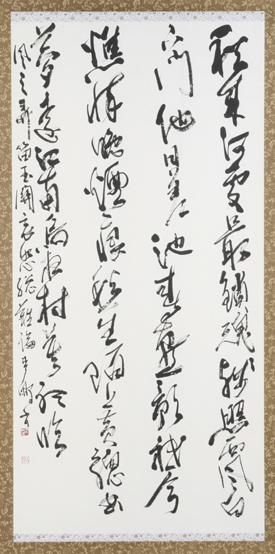 秋來何處最銷魂殘照西風白
下門他日差池春燕影祇今
憔悴晚煙痕愁生陌上黃驄曲
夢遠江南烏夜村莫聽臨
風三弄笛玉關哀怨總難論